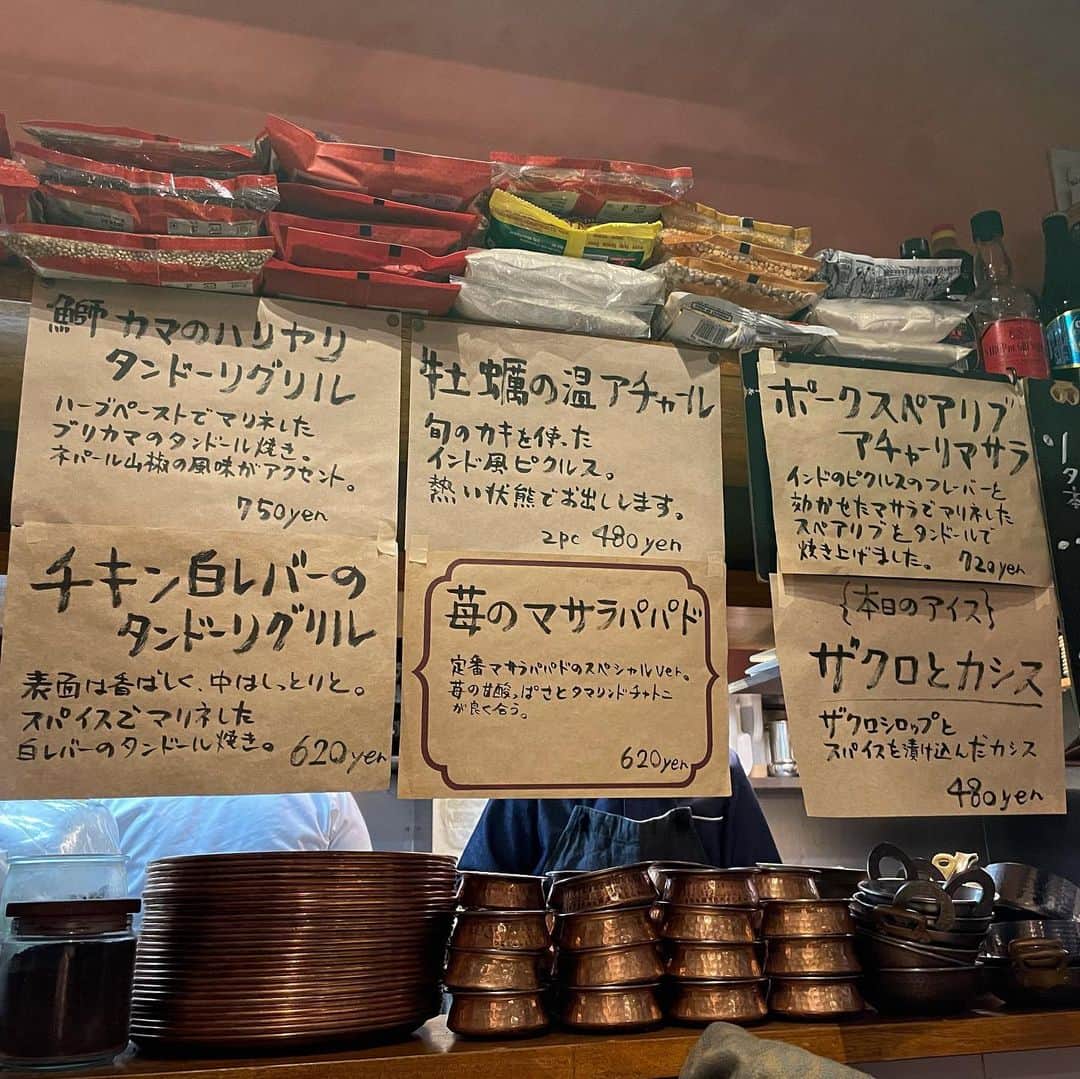 鰤カマのハリヤリ
タンドーリグリル
ハーブペーストでマリネした
ブリカマのタンドール焼き。
ネパール山椒の風味がアクセント。
750yen
チキン白レバーの
タンドーリグリル
表面は香ばしく、中はしっとりと。
スパイスでマリネした
白レバーのタンドール焼き。
620yen
牡蠣の温アチャール
旬のカキを使った
インド風ピクルス。
熱い状態でお出しします。
2pc 480yen
苺のマサラパパド
定番マサラパパドのスペシャルver。
苺の甘酸っぱさとタマリンドチャトニ
が良く合う。
620yen
ポークスペアリブ
アチャーリマサラ
インドのピクルスのフレーバーと
効かせたマサラでマリネした
スペアリブとタンドールで
焼き上げました。 720yen
{本日のアイス}
ザクロとカシス
ザクロシロップと
スパイスを漬け込んだカシス
480yen